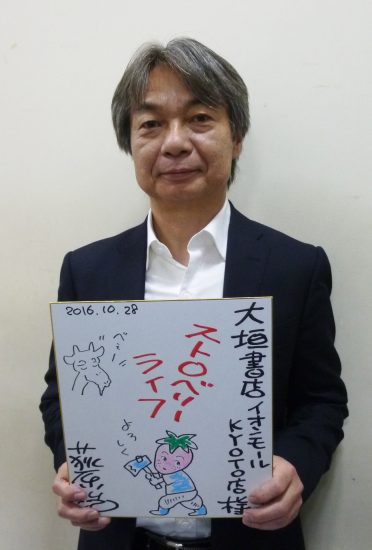 2016.10.28
大垣書店イオンモール
KYOTO店様
ストロベリー
ライフ
べぇー
よろしく
荻原浩